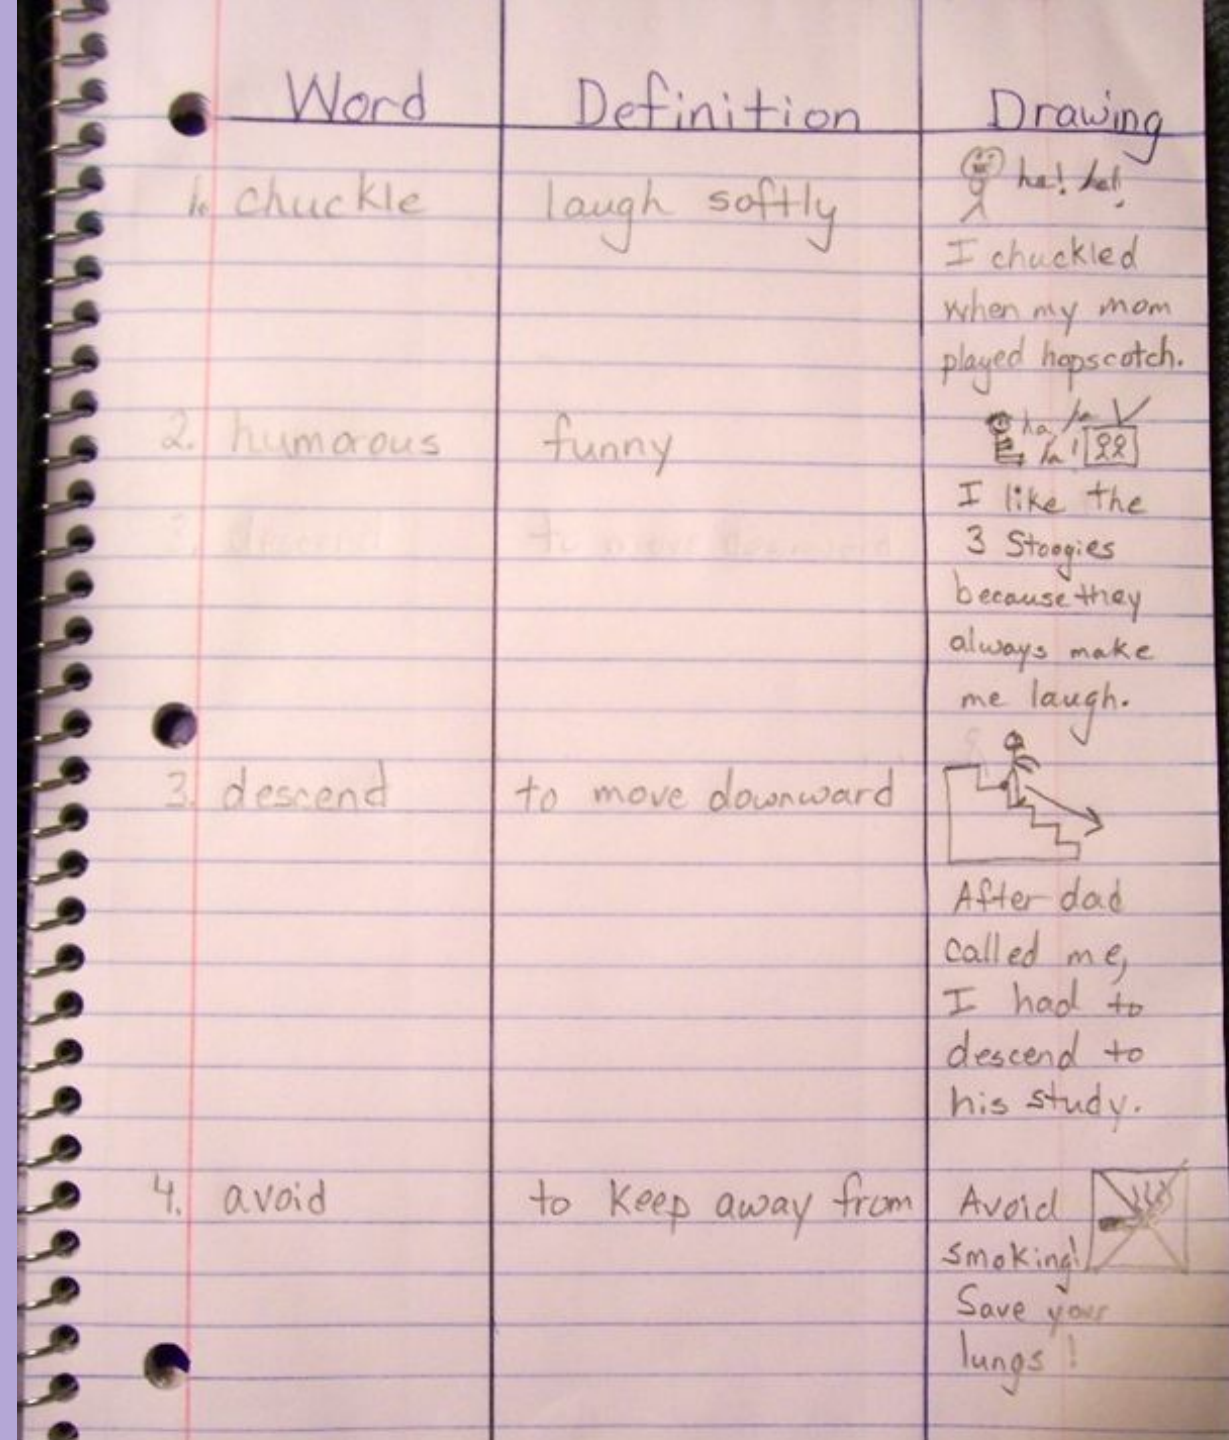 Word Definition Drawing
1. chuckle laugh softly ha! ha!
I chuckled
when my mom
played hopscotch.
2. humorous funny ha ha ha!
I like the
3 Stoogies
because they
always make
me laugh.
3. descend to move downward
3. descend to move downward
After dad
called me,
I had to
descend to
his study.
4. avoid to keep away from Avoid
smoking!
Save your
lungs!